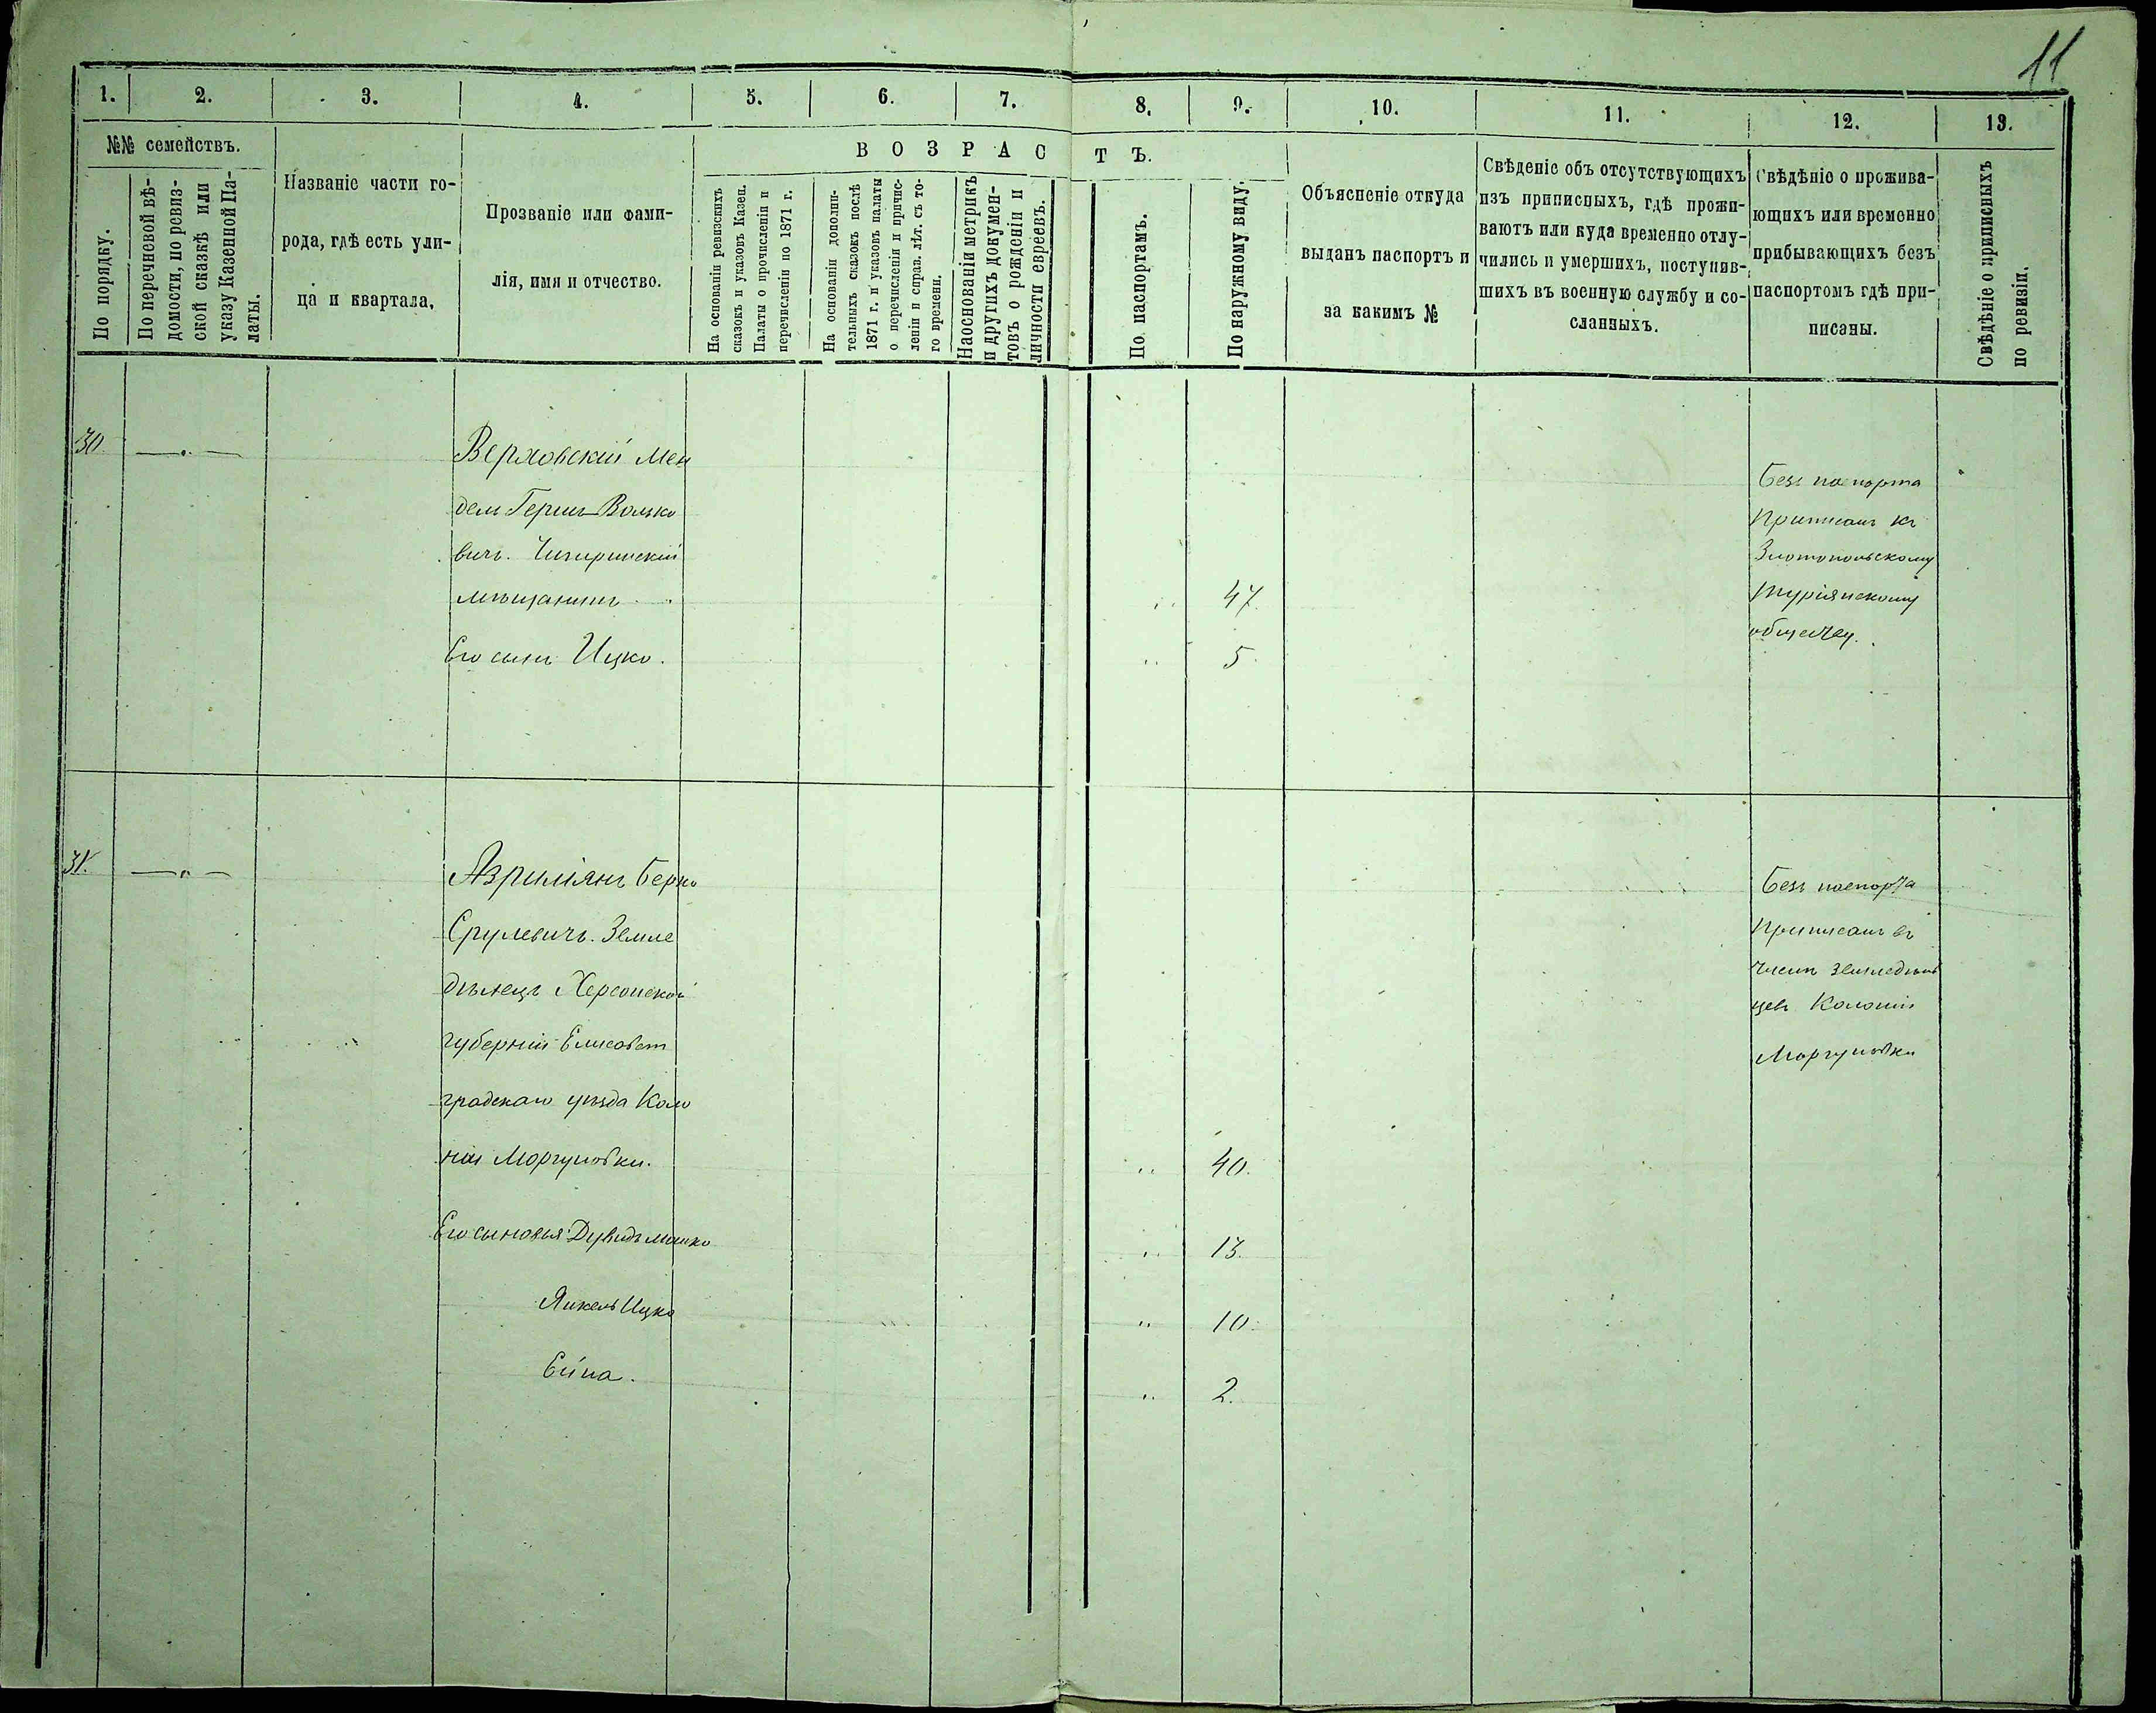 11
1. 2. 3. 4. 5. 6. 7. 8. 9. 10. 11. 12. 13.
№№ семействъ.
По порядку.
По перечневой вѣ-
домости, по ревиз-
ской сказкѣ или
указу Казенной Па-
латы.
Названіе части го-
рода, гдѣ есть ули-
ца и квартала.
Прозваніе или фами-
лія, имя и отчество.
ВОЗРАСТЪ.
На основаніи ревизскихъ
сказокъ и указовъ Казен.
Палаты о прочисленіи и
перечисленіи по 1871 г.
На основаніи дополни-
тельныхъ сказокъ послѣ
1871 г. и указовъ палаты
о перечисленіи и причис-
леніи и справ. лѣт. съ то-
го времени.
На основаніи метрикъ
и другихъ докумен-
товъ о рожденіи и
личности евреевъ.
По паспортамъ.
По наружному виду.
Объясненіе откуда
выданъ паспортъ и
за какимъ №
Свѣденіе объ отсутствующихъ
изъ приписныхъ, гдѣ прожи-
ваютъ или куда временно отлу-
чились и умершихъ, поступив-
шихъ въ военную службу и со-
сланныхъ.
Свѣдѣніе о прожива-
ющихъ или временно
прибывающихъ безъ
паспортомъ гдѣ при-
писаны.
Свѣдѣніе о приписныхъ
по ревизіи.
30.
Верховскій Мен
дель Герш Волько
вичъ. Чигиринскій
мѣщанинъ 47
Его сынъ Ицко. 5.
Безъ паспорта
Приписанъ къ
Златопольскому
Турiянскому
обществу.
31.
Азриліянъ Берко
Срулевичъ. Земле
дѣлецъ Херсонской
губерніи Елисавет
градскаго уѣзда Коло
ніи Моргуновки. 40.
Его сыновья: Дувидъ Мошко 13.
Янкель Ицко 10.
2.
Безъ паспорта
Приписанъ въ
числѣ земледѣль
цевъ Колоніи
Моргуновки